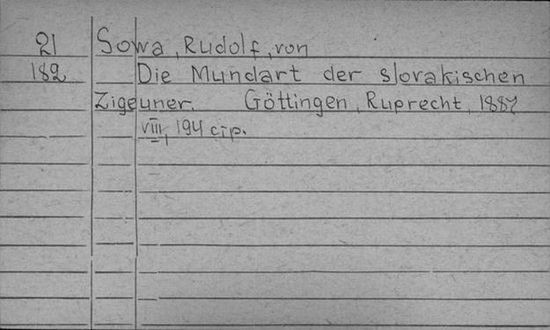 21 Sowa, Rudolf, von
182 Die Mundart der slovakischen
Zigeuner. Göttingen, Ruprecht, 1887
VIII, 194 cтp.